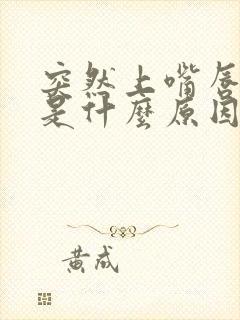 突然上嘴唇
是什麼原因
黄成